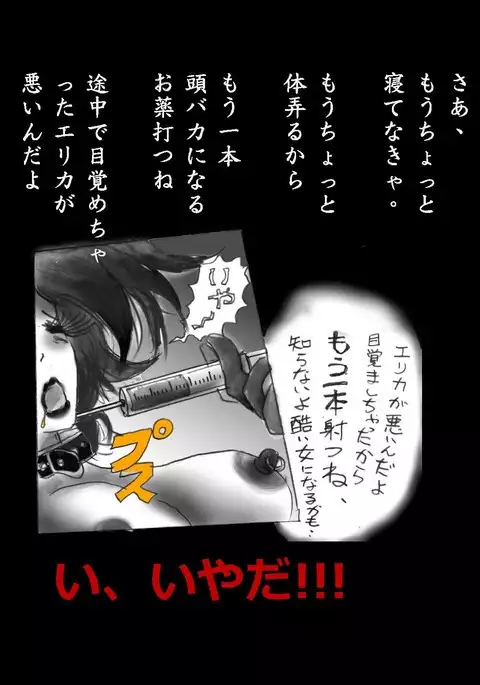 さあ、
もうちょっと
寝てなきゃ。
もうちょっと
体弄るから
もう一本
頭バカになる
お薬打つね
途中で目覚めちゃ
ったエリカが
悪いんだよ
いや〜
エリカが悪いんだよ
目覚ましちゃだから
もう一本射つね、
知らないよ酷い女になるかも・
プス
い、いやだ!!!